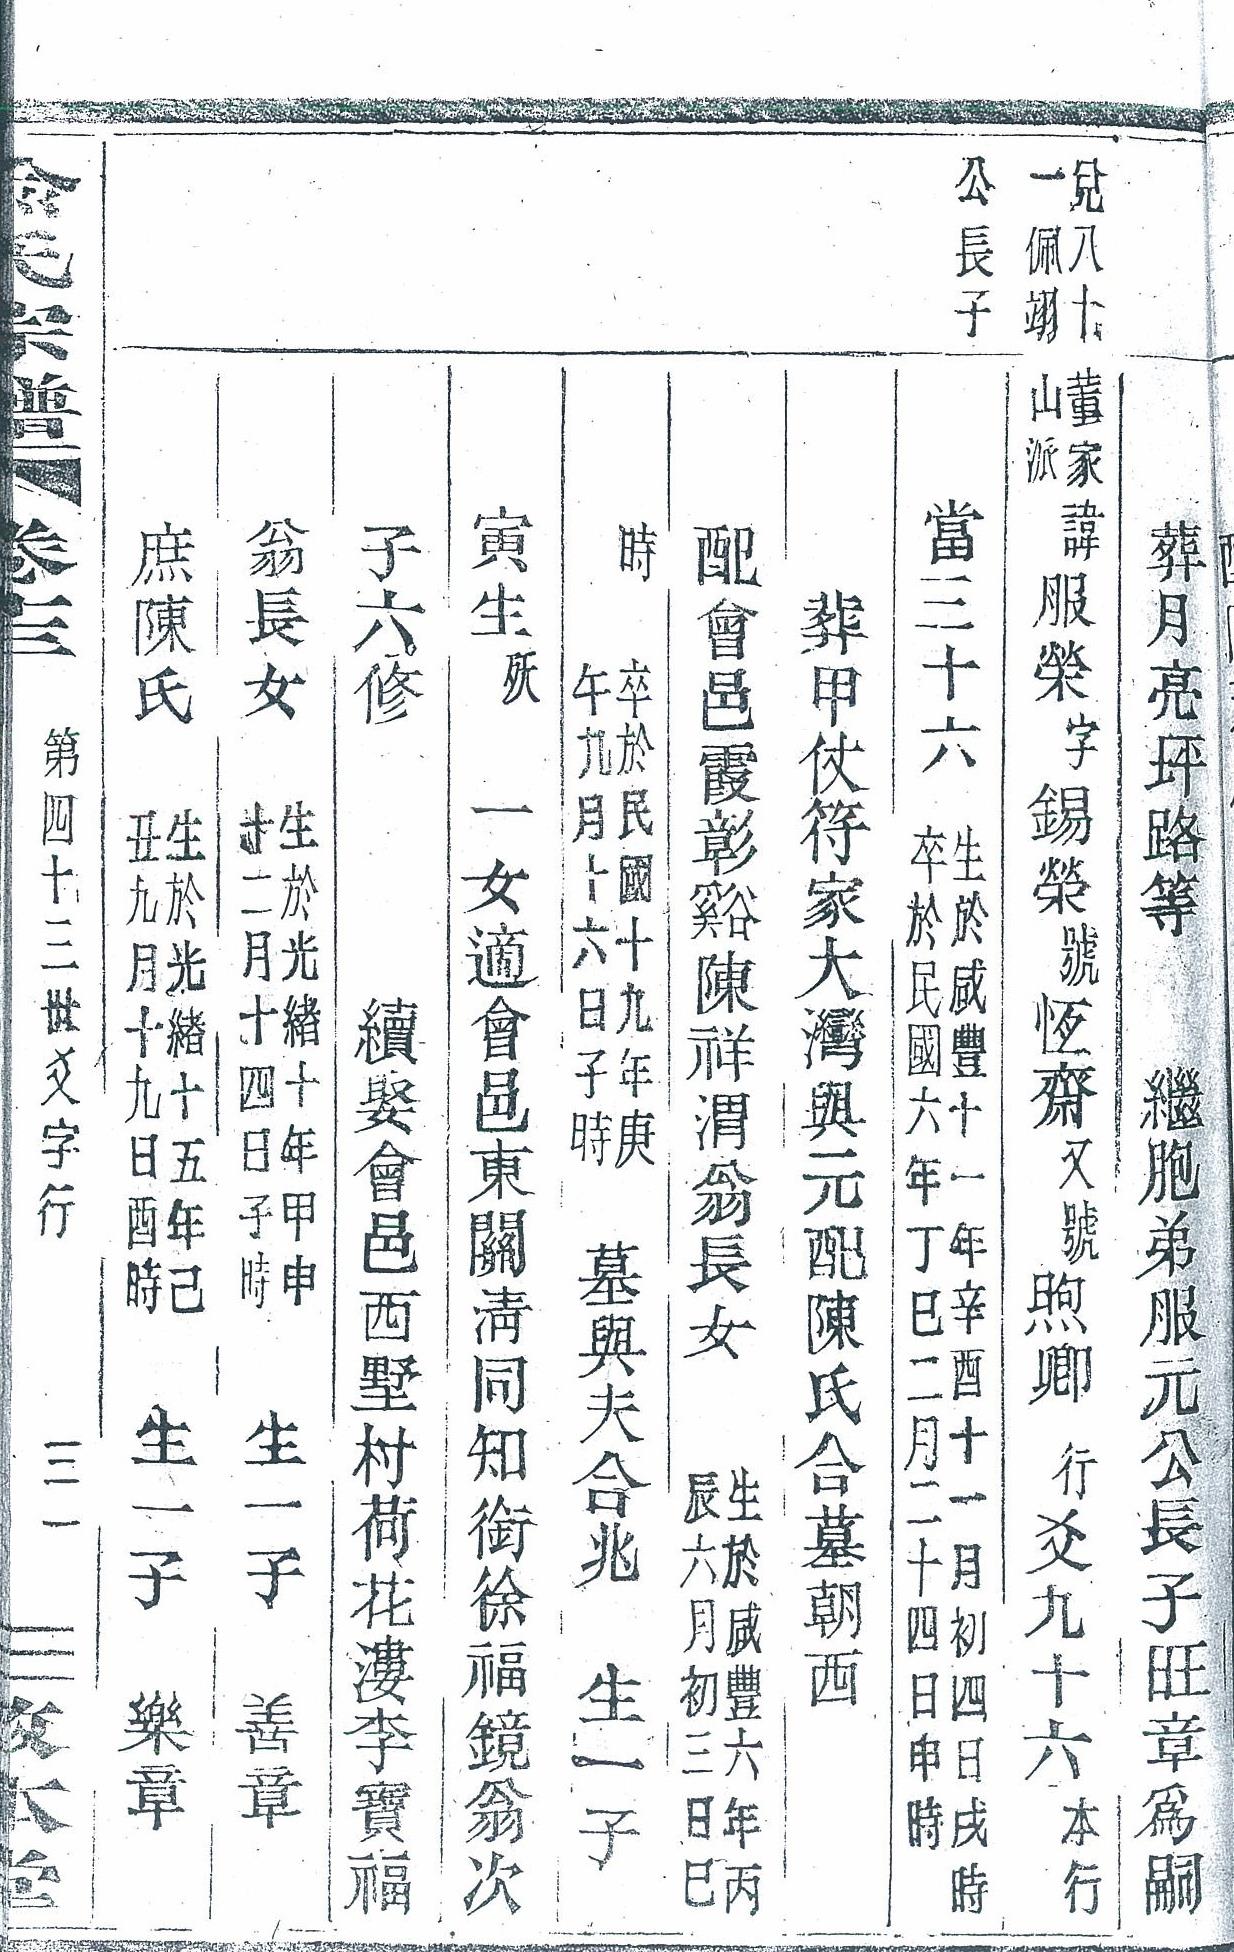 葬月亮坪路等　繼胞弟服元公長子旺章爲嗣
兌八十
一佩翊
公長子
董家
山派
諱服榮字錫榮號恆齋又號煦卿　行爻九十六本行
當三十六
生於咸豐十一年辛酉十一月初四日戌時
卒於民國六年丁巳二月二十四日申時
葬甲仗符家大灣與元配陳氏合墓朝西
配會邑霞彰谿陳祥渭翁長女
生於咸豐六年丙
辰六月初三日巳
時
卒於民國十九年庚
午九月十六日子時
墓與夫合兆　生一子
寅生殀　一女適會邑東關淸同知銜徐福鏡翁次
子六修　續娶會邑西墅村荷花漊李寶福
翁長女
生於光緖十年甲申
十二月十四日子時
生一子　善章
庶陳氏
生於光緖十五年己
丑九月十九日酉時
生一子　樂章
氏宗譜　卷三　第四十三世爻字行　三一　敦本堂